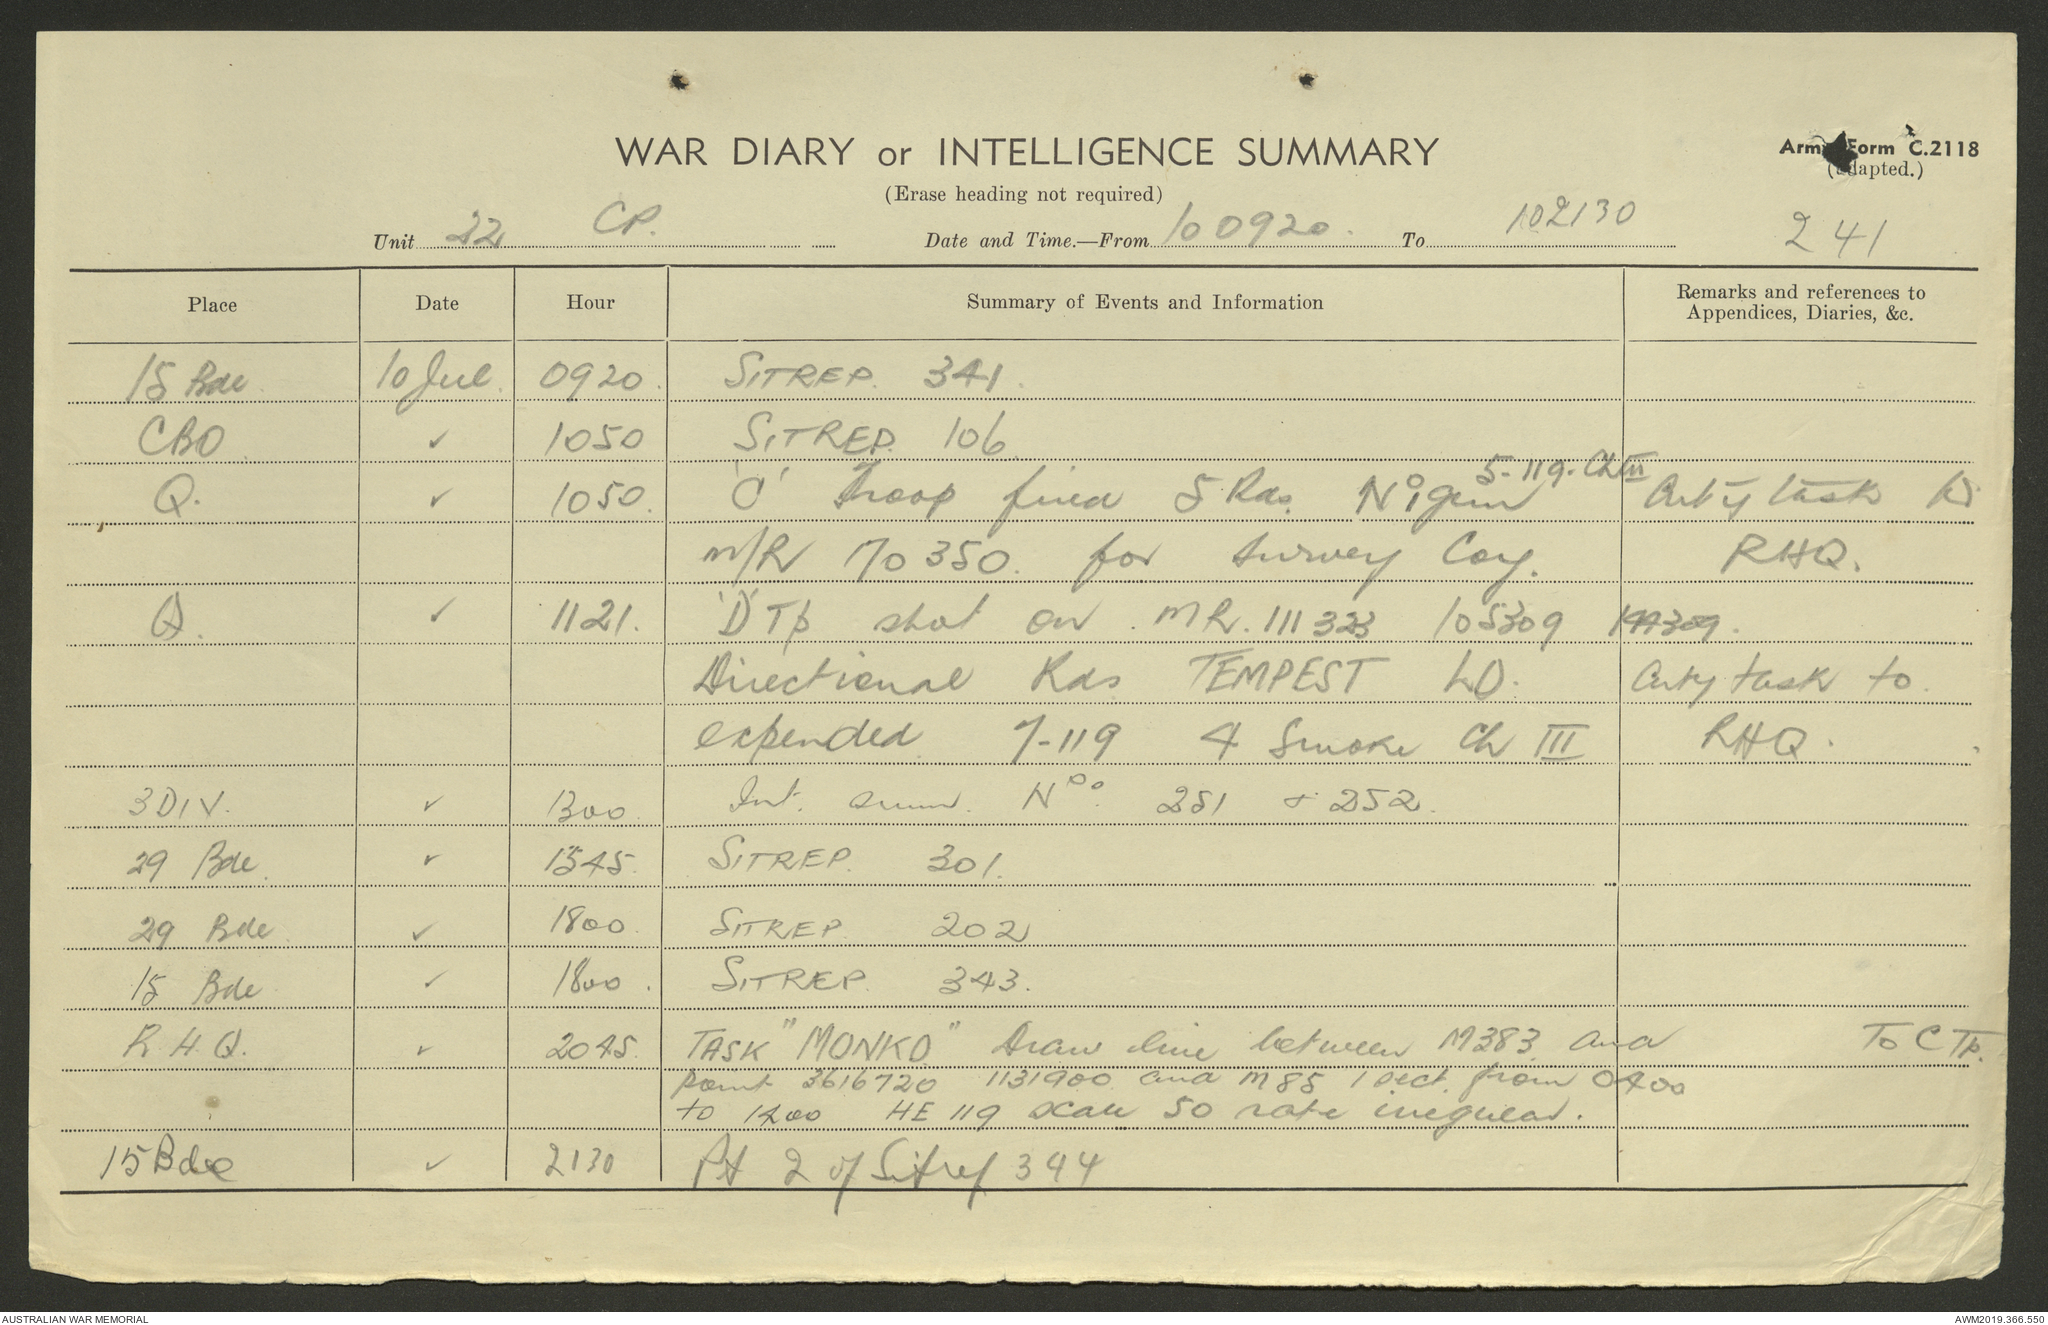 WAR DIARY or INTELLIGENCE SUMMARY
(Erase heading not required)
Army Form C.2118
(adapted.)
Unit 22 CP. Date and Time.—From 100920. To 102130
241
Place Date Hour Summary of Events and Information Remarks and references to
Appendices, Diaries, &c.
15 Bde 10 Jul. 0920. SITREP. 341.
CBO ✓ 1050 SITREP. 106
5-119-Ch III
Q. ✓ 1050. 'C' Troop fired 5 Rds. No 1 gun Arty task to
M/R 170350. for Survey Coy. RHQ.
Q. ✓ 1121. 'D' Tp shot on MR. 111323 105309
Directional Rds TEMPEST LD. Arty task to
expended 7-119 4 Smoke Ch III RHQ.
3 DIV. ✓ 1300 Int. summ. Nos. 251 + 252.
29 Bde. ✓ 1545. SITREP. 301.
29 Bde ✓ 1800. SITREP. 202
15 Bde ✓ 1800. SITREP. 343.
R.H.Q. ✓ 2045. TASK "MONKO" Draw line between M383 and To C Tp.
point 3616720 1131900 and M85 1 sect. from 0400
to 1200 HE 119 scale 50 rate irregular.
15 Bde ✓ 2130 Pt 2 of Sitrep 344
AUSTRALIAN WAR MEMORIAL
AWM2019.366.550